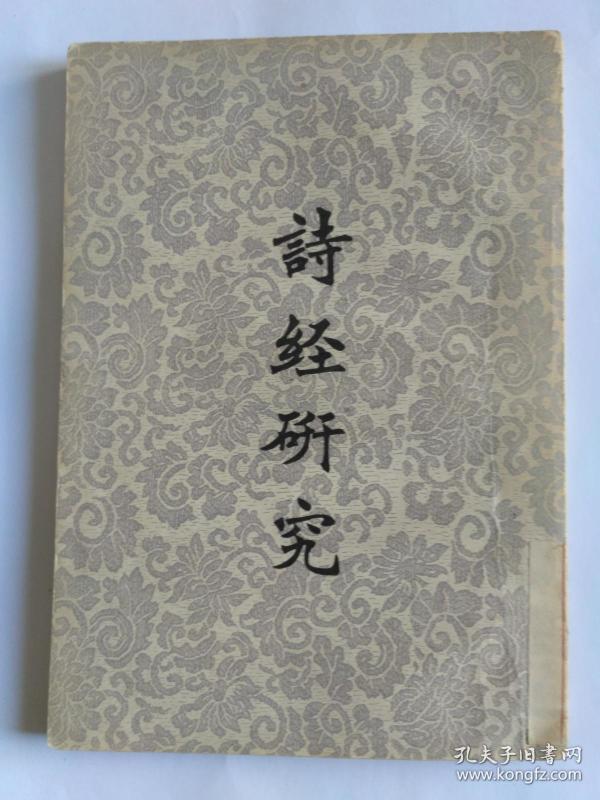 詩经研究
孔夫子旧書网
www.kongfz.com